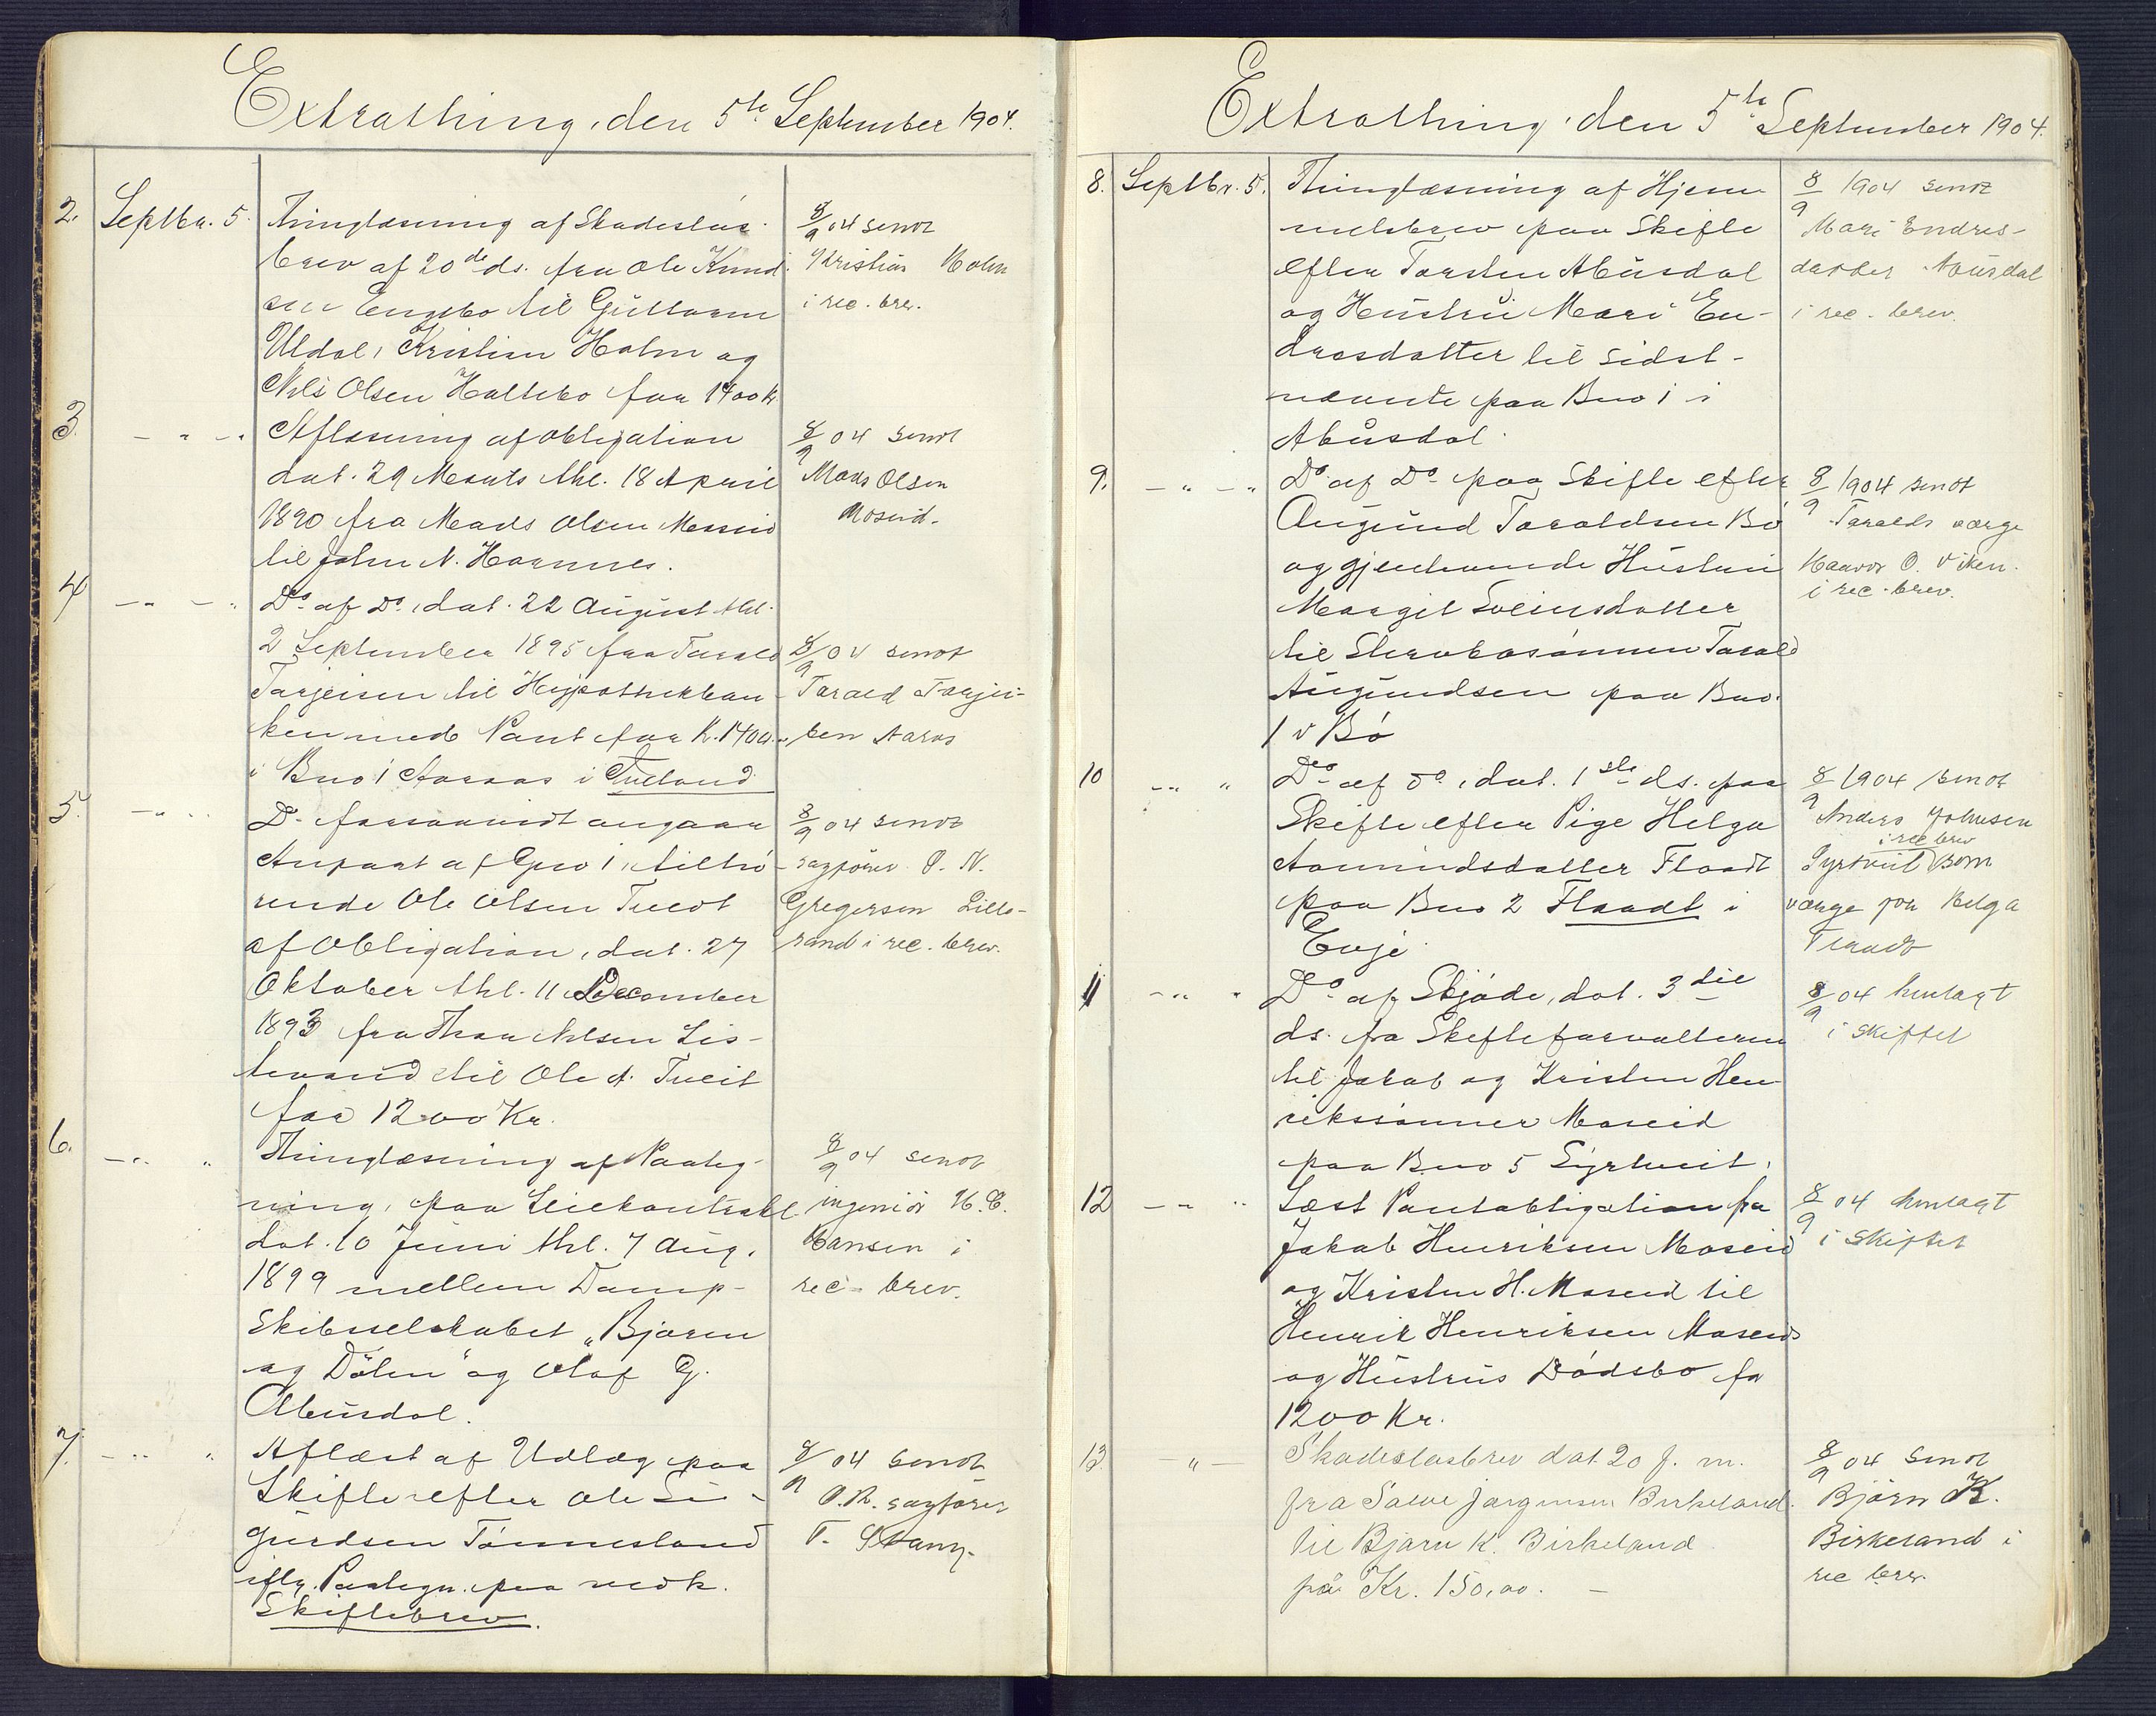 Extrathing, den 5te September 1904.
2. Septbr. 5. Thinglæsning af Skadeslös-
brev af 20de ds. fra Ole Knud-
sen Engebo til Guttorm
Uldal, Kristian Holm og
Nils Olsen Haltebo for 1400 Kr
8/9 04 sendt
Kristian Holm
i rec. brev.
3. - " - " Aflæsning af Obligation
dat. 29 Marts thl. 18 April
1890 fra Mads Olsen Moseid
til John N. Hornnes.
8/9 04 sendt
Mads Olsen
Moseid.
4 - " - " Do af Do, dat. 22 August thl.
2 September 1895 fra Tarald
Tarjeisen til Hypothekban-
ken med Pant for K. 1400..
i Bno 1 Aaraas i Tveland
8/9 04 sendt
Tarald Tarjei-
sen Aaras
5. - " - " Do forsaavidt angaar
Anpart af Gno 1, tilhö-
rende Ole Olsen Tveit
af Obligation, dat. 27
Oktober thl. 11 December
1893 fra Thor Nilsen Lis-
tevand til Ole A. Tveit
for 1200 Kr.
8/9 04 sendt
sagförer O. N.
Gregersen Lille-
sand i rec. brev.
6. - " - " Thinglæsning af Paateg-
ning, paa Leiekontrakt
dat. 10 Juni thl. 7 Aug.
1899 mellem Damp-
skibsselskabet „Bjoren
og Dölen" og Olaf G.
Abusdal.
8/9 04 sendt
ingeniör H. C.
Hansen i
rec. brev.
7. - " - " Aflæst af Udlæg paa
Skifte efter Ole Si-
gurdsen Tönnesland
iflg. Paategn. paa vedk.
Skiftebrev.
8/9 04 sendt
O.R. sagförer
T. Stang.
Extrathing, den 5te September 1904.
8. Septbr. 5. Thinglæsning af Hjem-
melsbrev paa Skifte
efter Torsten Abusdal
og Hustru Mari En-
dresdatter til sidst-
nævnte paa Bno 1 i
Abusdal.
8/9 1904 sendt
Mari Endres-
datter Abusdal
i rec. brev.
9. - " - " Do af Do paa Skifte efter
Augund Taraldsen Bö
og gjenlevende Hustru
Margit Sveinsdatter
til Stervbosönnen Tarald
Augundsen paa Bno.
1 i Bö
8/9 1904 sendt
Taralds værge
Haavor O. Viken.
i rec. brev.
10 - " " Do af do, dat. 1ste ds. paa
Skifte efter Pige Helga
Aamundsdatter Flaadt
paa Bno 2 Flaadt i
Evje
8/9 1904 sendt
Anders Johnsen
i rec brev
Syrtveit Som
værge for Helga
Flaadt
11 - " " Do af Skjöde, dat. 3die
ds. fra Skifteforvalteren
til Jakob og Kristen Hen-
rikssönner Moseid
paa Bno 5 Syrtveit.
8/9 04 henlagt
i Skiftet
12 - " - " Læst Pantobligation fra
Jakob Henriksen Moseid
og Kristen H. Moseid til
Henrik Henriksen Moseids
og Hustrus Dödsbo for
1200 Kr.
8/9 04 henlagt
i Skiftet
13. - " - Skadeslösbrev dat. 20 f. m.
fra Salve Jörgensen Birkeland.
til Bjørn K. Birkeland
på Kr. 150,00. -
8/9 04 sendt
Bjørn K.
Birkeland i
rec brev.